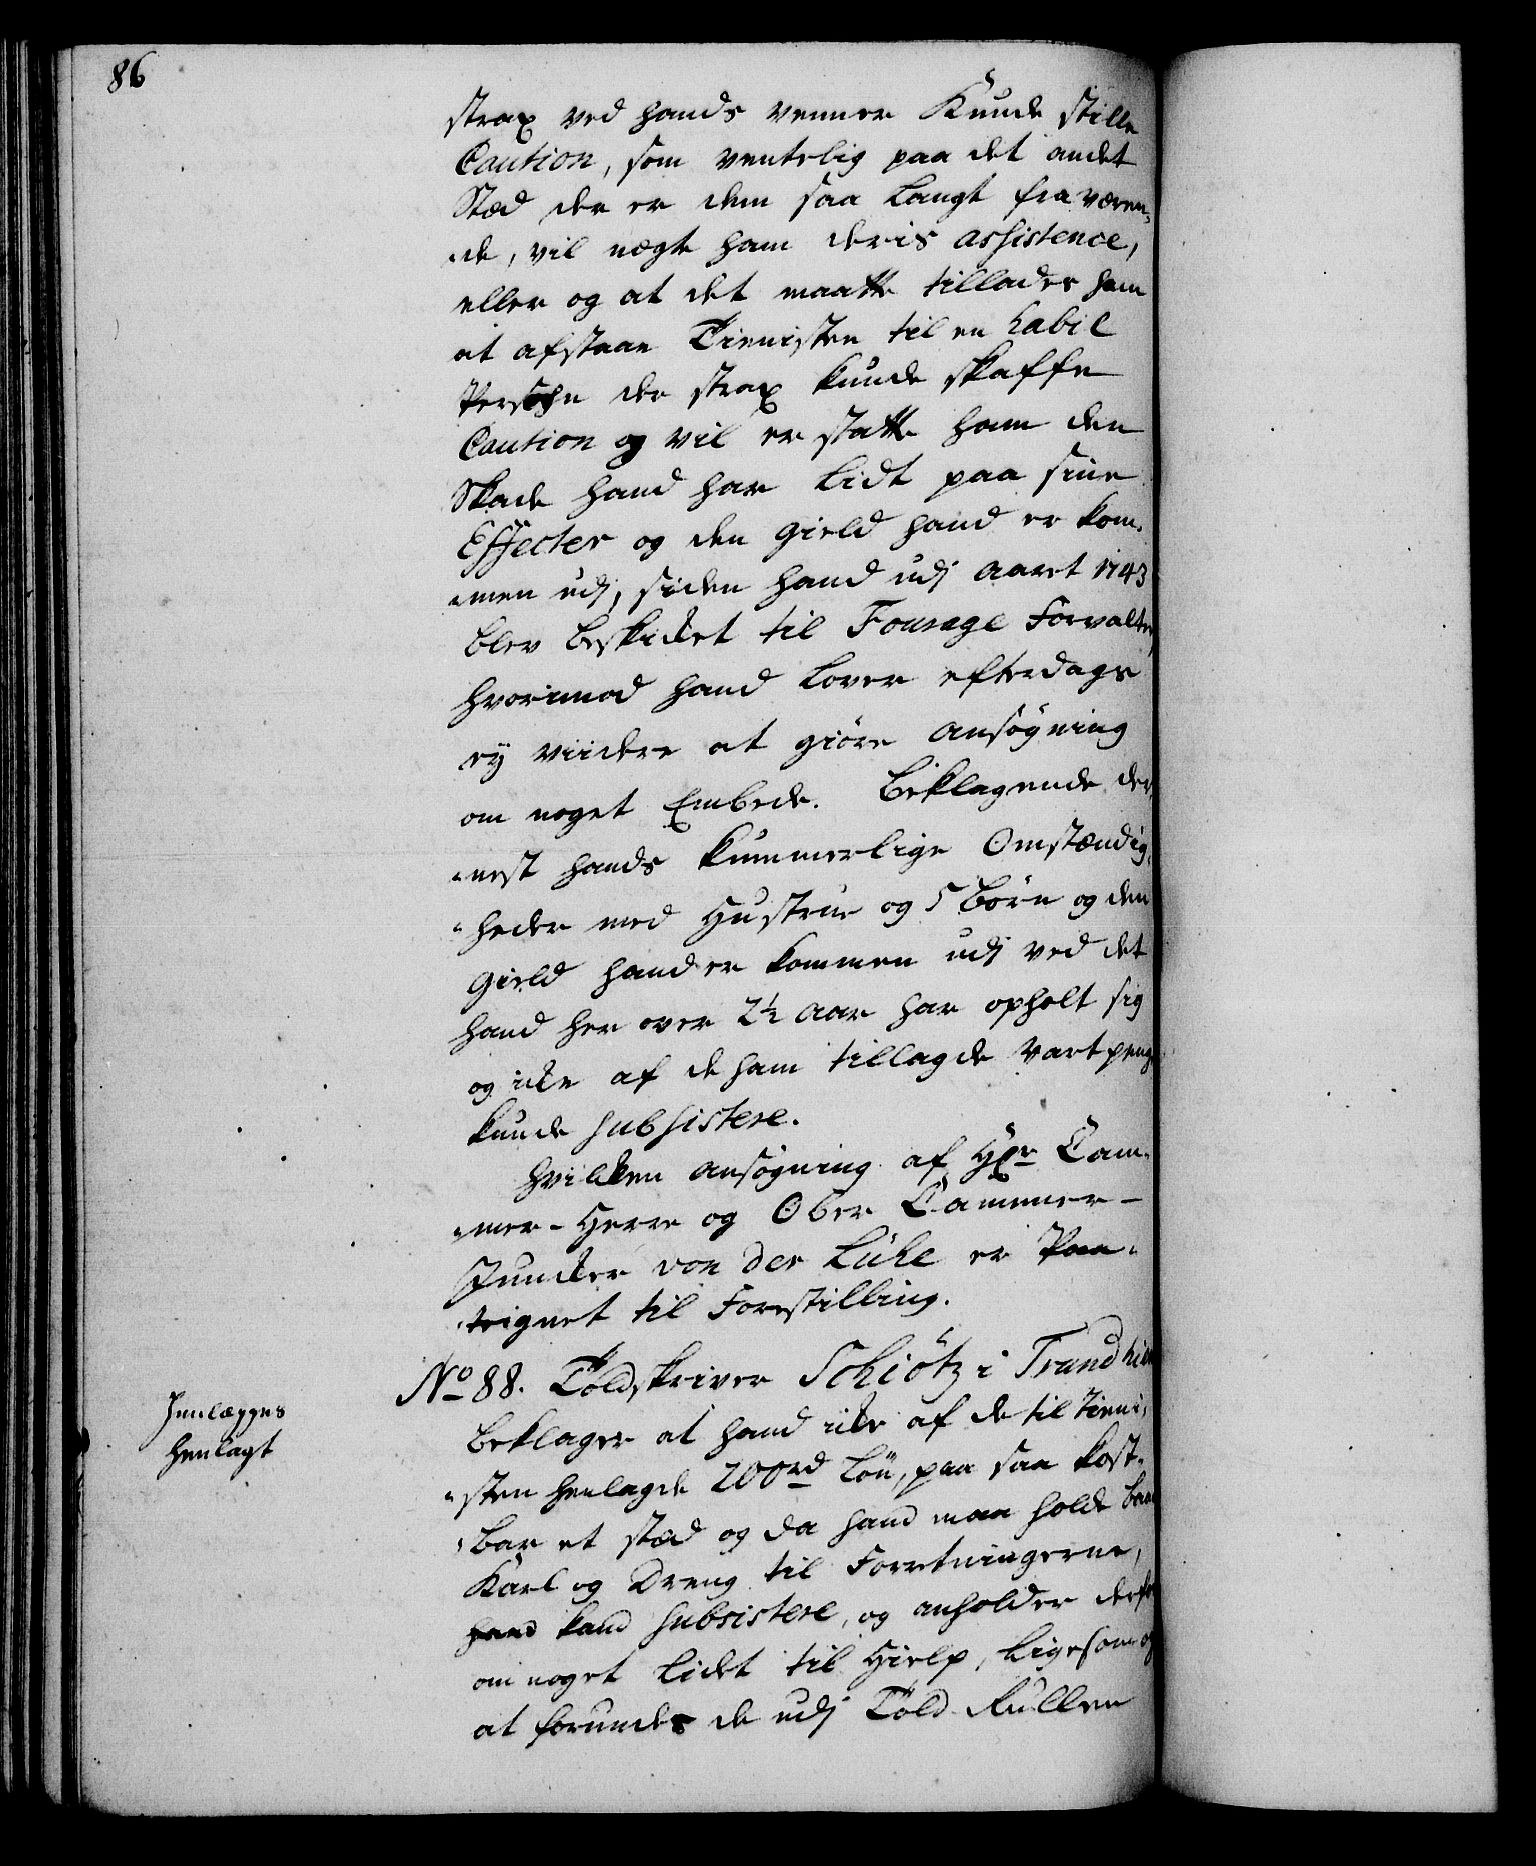 86
strax ved hands venner Kunde stille
Caution, som ventelig paa det andet
Stæd der er dem saa langt fraværen-
de, vil nægte ham deris assistence,
eller og at det maatte tillades ham
at afstaae Tienisten til en habil
Persohn der strax kunde skaffe
Caution og vil erstatte ham den
Skade hand har lidt paa sine
Effecter og den gield hand er kom-
men udj, siden hand udj aaret 1743
blev beskicket til Fourage Forvalter,
hvorimod hand lover efterdags
ey viidere at giöre ansögning
om noget Embede. Beklagende der-
nest hands kummerlige Omstændig-
heder med Hustrue og 5 börn og den
gield hand er kommen udj ved det
hand her over 2½ aar har opholt sig
og icke af de ham tillagde Vartpenge
kunde subsistere.
Hvilken ansögning af Hr Cam-
mer-Herre og Ober Cammer-
Juncker von der Lühe er Paa-
teignet til Forestilling.
No 88. Toldskriver Schiötz i Trundhiem
beklager at hand icke af de til Tieni-
sten henlagde 200 rd lön, paa saa kost-
bar et stæd og da hand maa holde baade
Karl og Dreng til Forretningerne,
hand kand subsistere, og anholder derfor
om noget lidet til Hielp, ligesom og
at forundes de udj Told-Rullen
Innlægges
henlagt